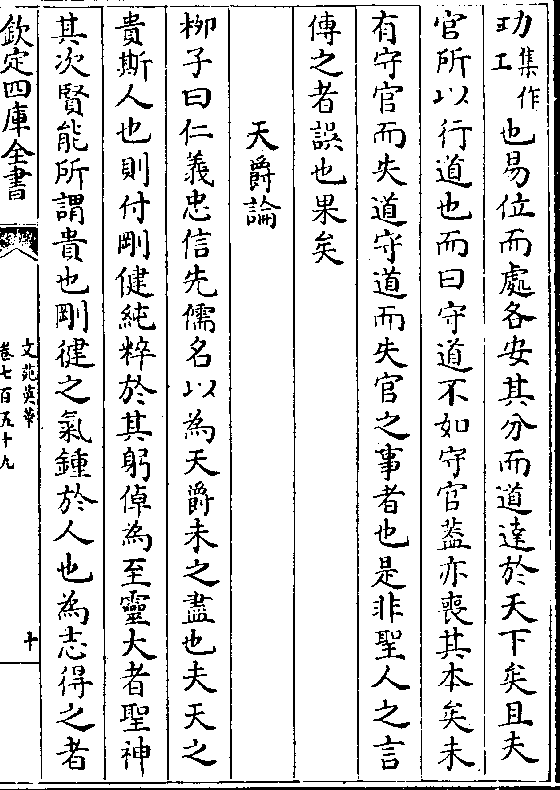 功集作工也易位而處各安其分而道達於天下矣且夫
官所以行道也而曰守道不如守官葢亦喪其本矣未
有守官而失道守道而失官之事者也是非聖人之言
傳之者誤也果矣
天爵論
栁子曰仁義忠信先儒名以為天爵未之盡也夫天之
貴斯人也則付剛健純粹於其躬倬為至靈大者聖神
其次賢能所謂貴也剛健之氣鍾於人也為志得之者
欽定四庫全書
文苑英華
卷七百五十九
十